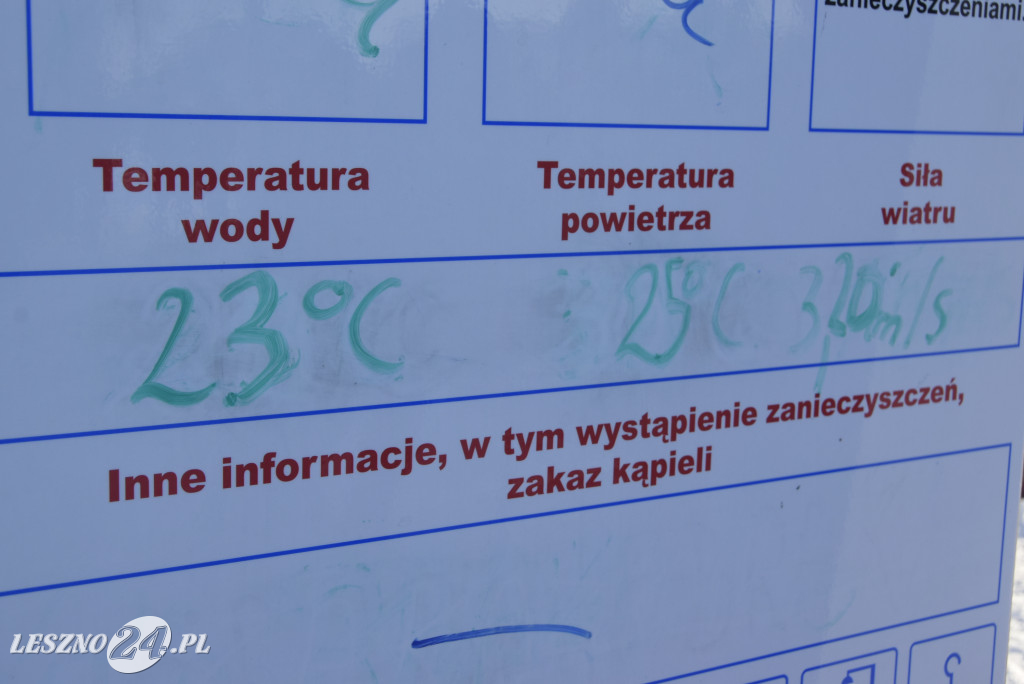 zanieczyszczeniami.
Temperatura
wody
Temperatura
powietrza
Siła
wiatru
23°C
25°C
3,20 m/s
Inne informacje, w tym wystąpienie zanieczyszczeń,
zakaz kąpieli
LESZNO24.PL